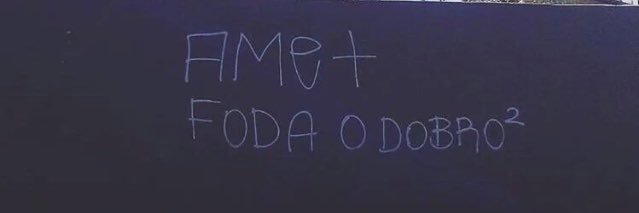 AMe +
FODA O DOBRO²